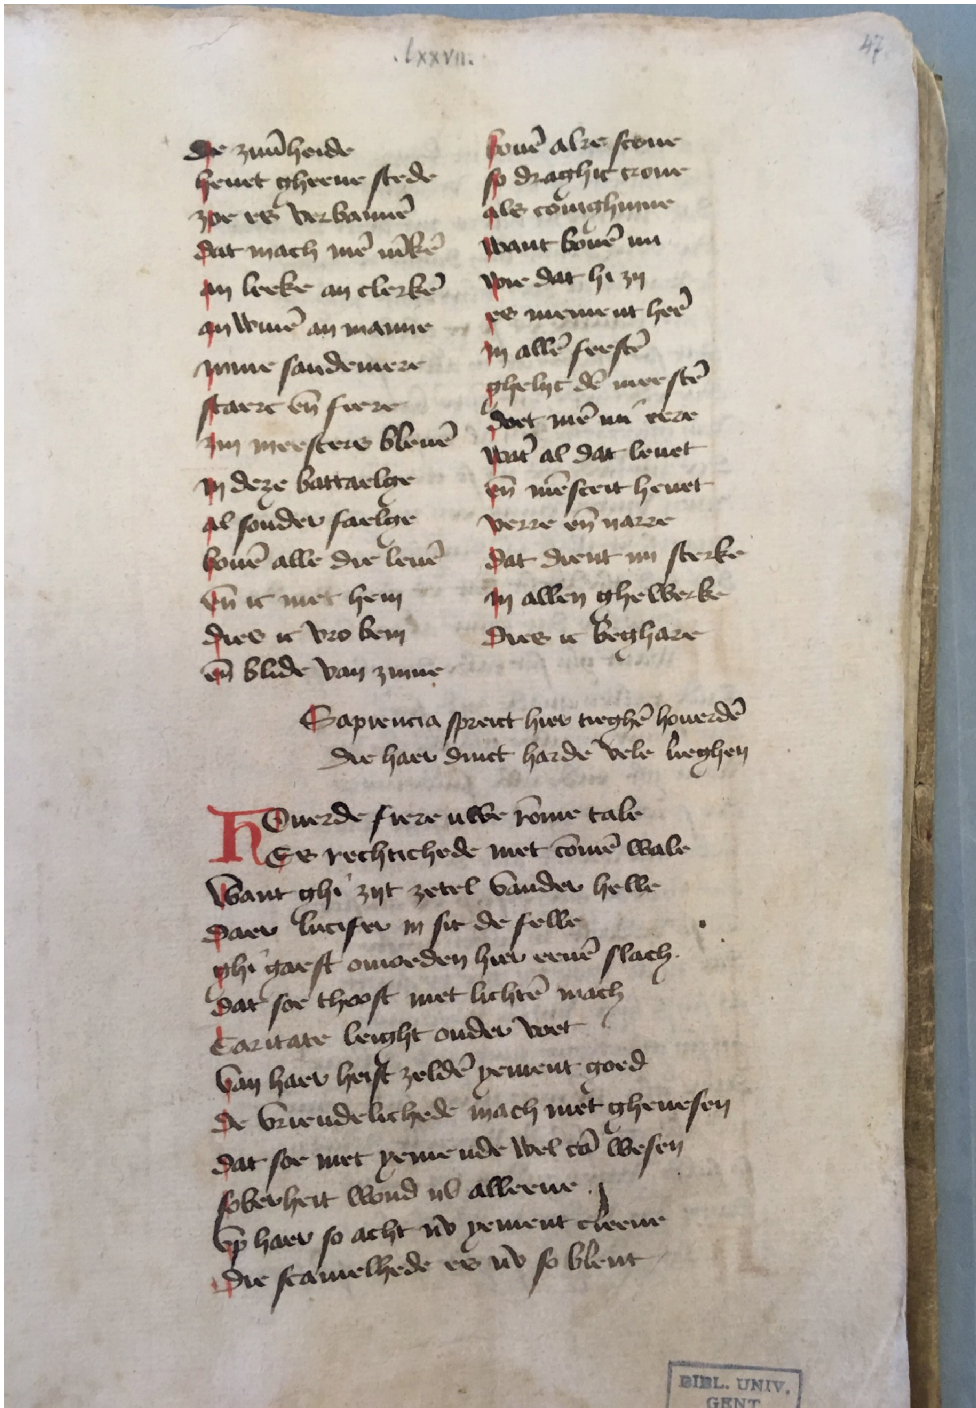 .lxxvii.
47
Die zuūheide
heuet gheene stede
zoe es verbannē
dat mach mē mkē
an leeke an clerkē
an wiuē an manne
mine saudeniere
staerc eñ fiere
zin meesters bleuē
in deze battaelge
al sonder faelge
bouē alle die leuē
eñ ic met hem
dies ic vro bem
eñ blide van zinne
bouē alre scone
so draghic crone
als coninghinne
want bouē mi
wie dat hi zy
es niement heē
in allē feestē
ghelijc dē meestē
doet mē mi eere
wāt al dat leuet
eñ mēsceit heuet
verre eñ narre
dat dient mi sterke
in allen ghewerke
dies ic beghare
Sapiencia spreict hier tieghē houerdē
die haer dinct harde vele lieghen
hOuerde fiere uwe rōme tale
Es rechtichede niet cōmē wale
want ghi zijt zetel vander helle
daer lucifer in sit de felle
ghi gaeft omoeden hier eenē slach
dat soe thooft niet lichtē mach
Caritate leight onder voet
van haer heift zeldē yement goed
de vriendelichede mach niet ghenesen
dat soe met yemende wel cā wesen
soberheit woud nv alleene
vp haer so acht nv yement cleene
die scamelhede es nv so blent
BIBL. UNIV.
GENT